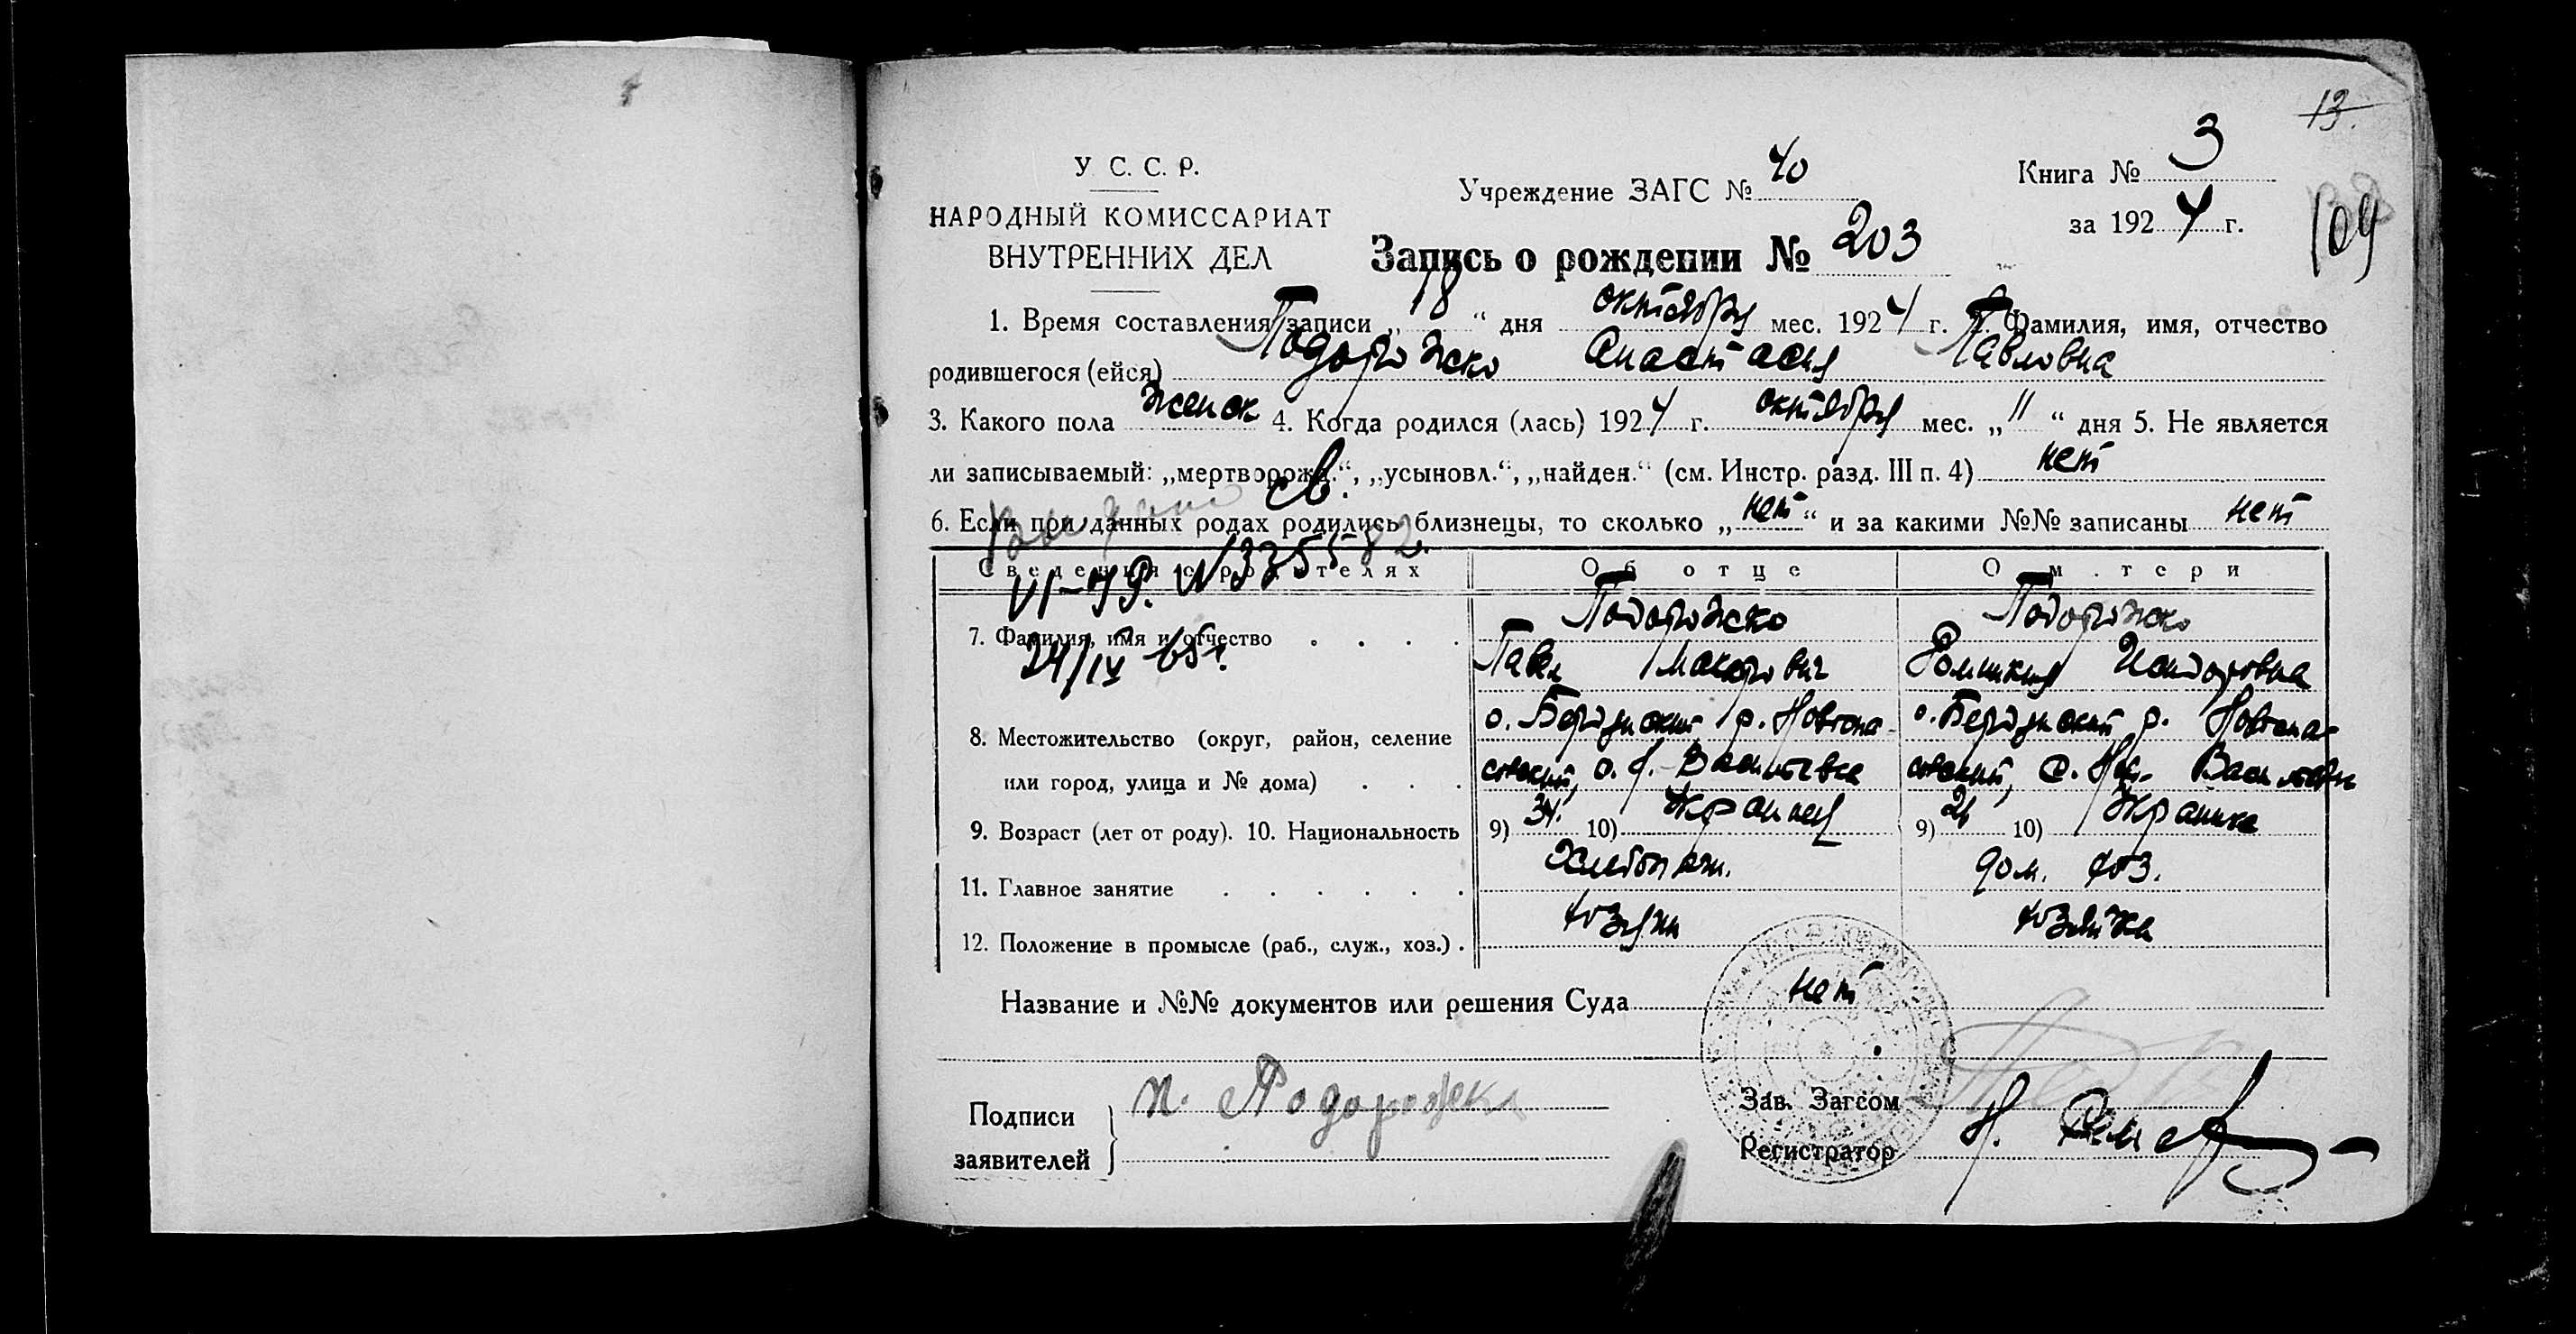 13.
У С. С. Р.
НАРОДНЫЙ КОМИССАРИАТ
ВНУТРЕННИХ ДЕЛ
Учреждение ЗАГС № 40
Книга № 3
за 1924 г.
109
Запись о рождении № 203
1. Время составления записи „18“ дня октября мес. 1924 г. 2. Фамилия, имя, отчество
родившегося (ейся) Подорожко Анастасия Павловна
3. Какого пола женск 4. Когда родился (лась) 1924 г. октября мес. „11“ дня 5. Не является
ли записываемый: „мертворожд.“, „усыновл.“, „найден.“ (см. Инстр. разд. III п. 4) нет
6. Если при данных родах родились близнецы, то сколько „нет“ и за какими №№ записаны нет
св.
VI-ЯР. №335582.
24/IV 65г.
Сведения о родителях Об отце О матери
7. Фамилия, имя и отчество . . . . Подорожко Подорожко
Павел Макарович Исидоровна
8. Местожительство (округ, район, селение о. Бердянский р. Новоспа- о. Бердянский р. Новоспа-
или город, улица и № дома) . . . совский, с. Н. Васильевка совский, с. Н. Васильевк
9. Возраст (лет от роду). 10. Национальность 9) 34. 10) Украинец 9) 10) Украинка
11. Главное занятие . . . . . . Хлебопаш. дом. хоз.
12. Положение в промысле (раб., служ., хоз.) . хозяин хозяйка
Название и №№ документов или решения Суда нет
Подписи
заявителей
П. Подорожко
Зав. Загсом
Регистратор